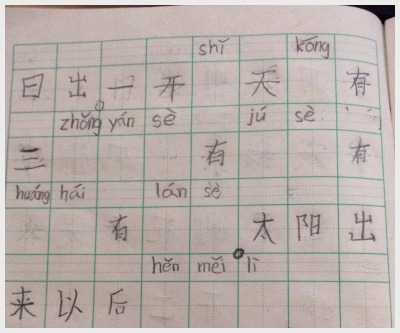 shǐ kōng
日出一开天有
zhǒng yán sè jú sè
三有有
huáng hái lán sè
有太阳出
hěn měi lì
来以后